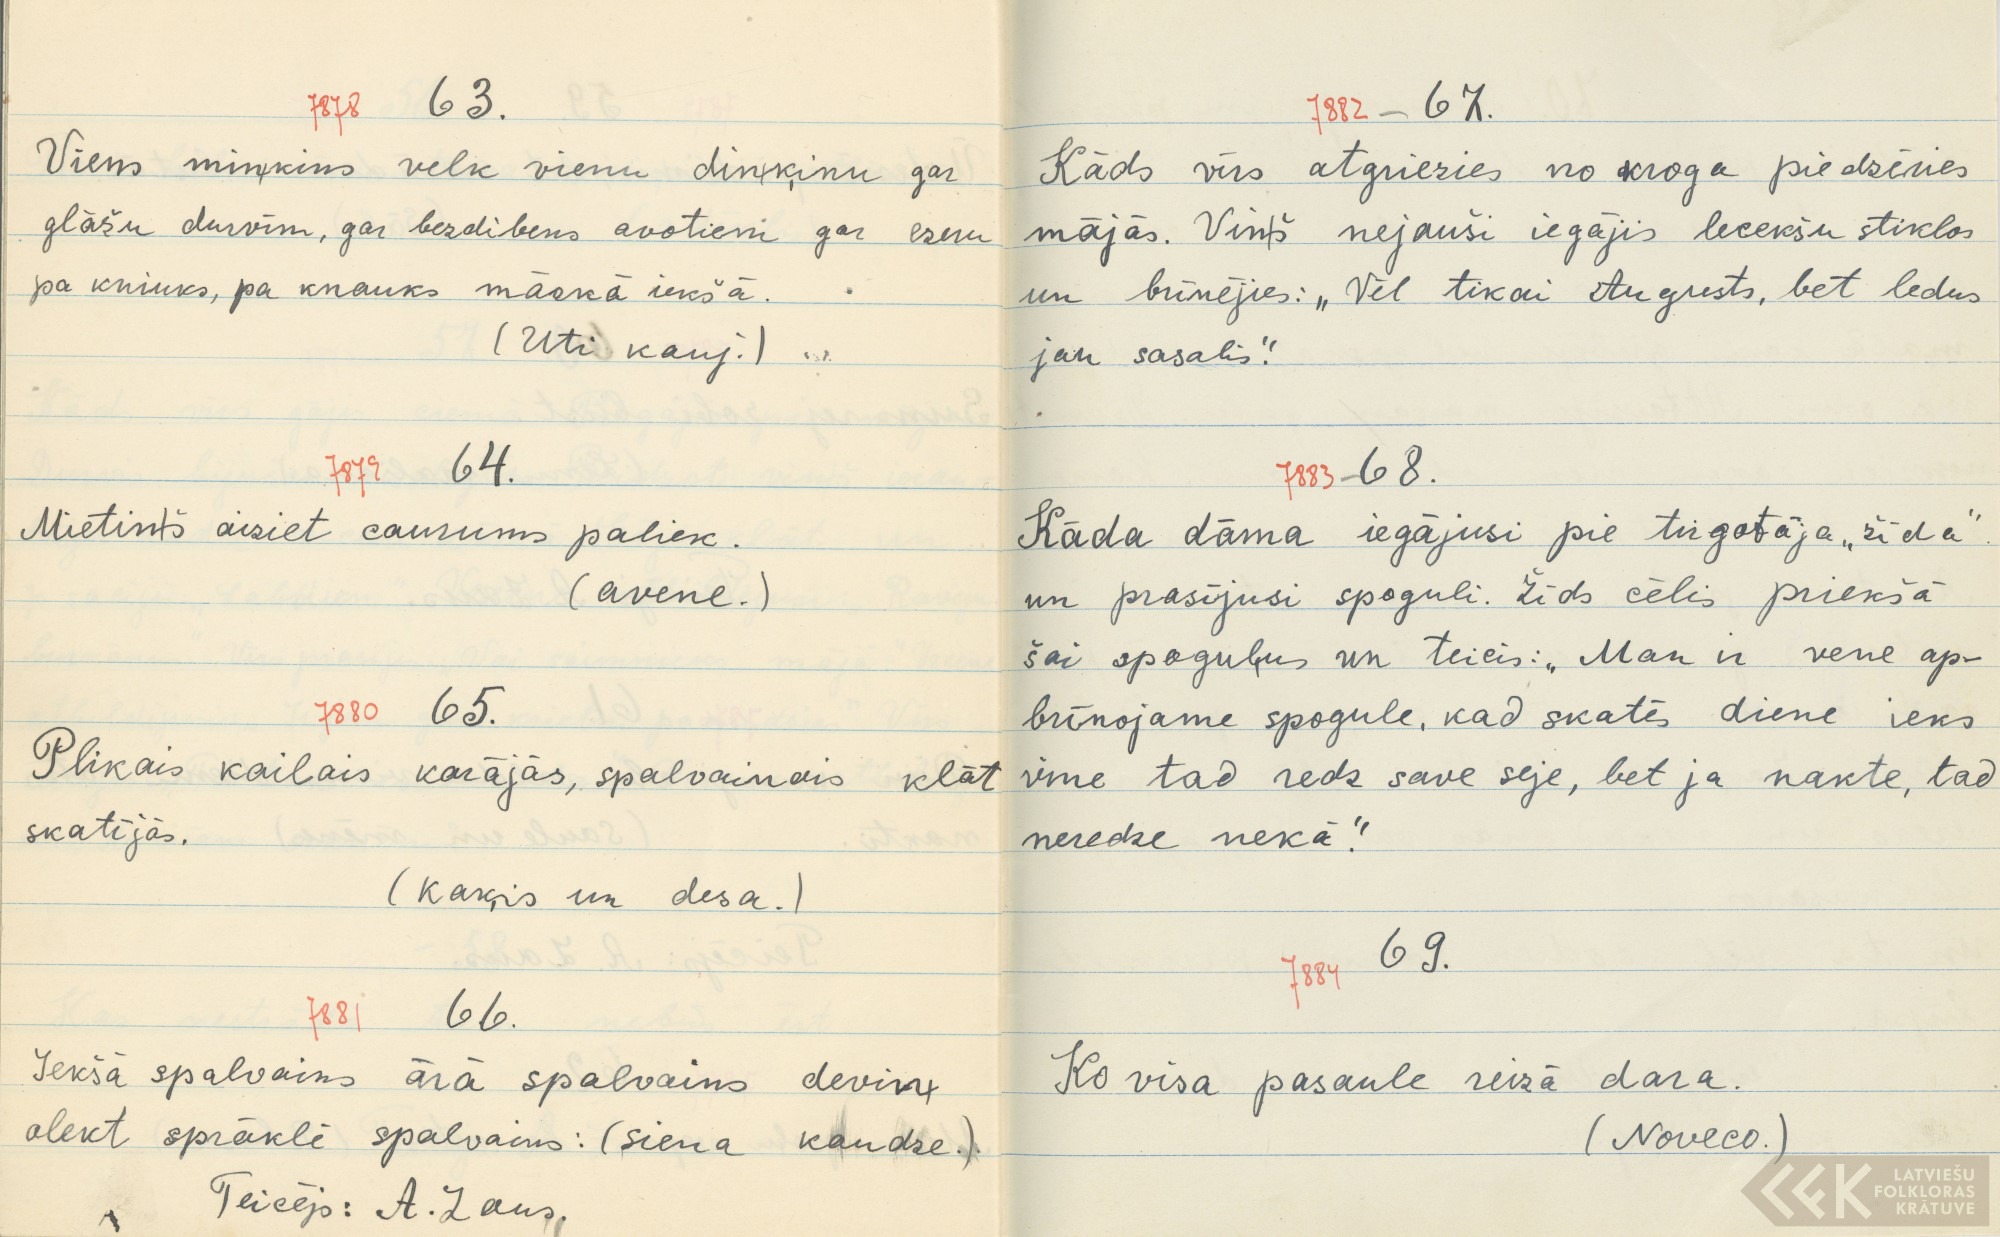 7878 63.
Viens miņķins velk vienu diņķinu gar
glāžu durvīm, gar bezdibens avotiem gar ezeru
pa kniuks, pa knauks māskā iekšā.
(Uti kauj.)
7879 64.
Mietiņš aiziet caurums paliek.
(avene.)
7880 65.
Plikais kailais karājās, spalvainais klāt
skatījās.
(Kaķis un desa.)
7881 66.
Iekšā spalvains ārā spalvains deviņ
olekt sprāklē spalvains: (siena kaudze.)
Teicējs: A. Zaus.
7882 – 67.
Kāds vīrs atgriezies no kroga piedzēries
mājās. Viņš nejauši iegājis lecekšu stiklos
un brīnējies: „Vēl tikai Augusts, bet ledus
jau sasalis".
7883 – 68.
Kāda dāma iegājusi pie tirgotāja „žīda"
un prasījusi spoguli. Žīds cēlis priekšā
šai spoguļus un teicis: „Man ir vene ap-
brīnojame spogule, kad skatēs diene ieks
viņe tad redz save seje, bet ja nakte, tad
neredze nekā".
7884 69.
Ko visa pasaule reizā dara.
(Noveco.)
LATVIEŠU
FOLKLORAS
KRĀTUVE